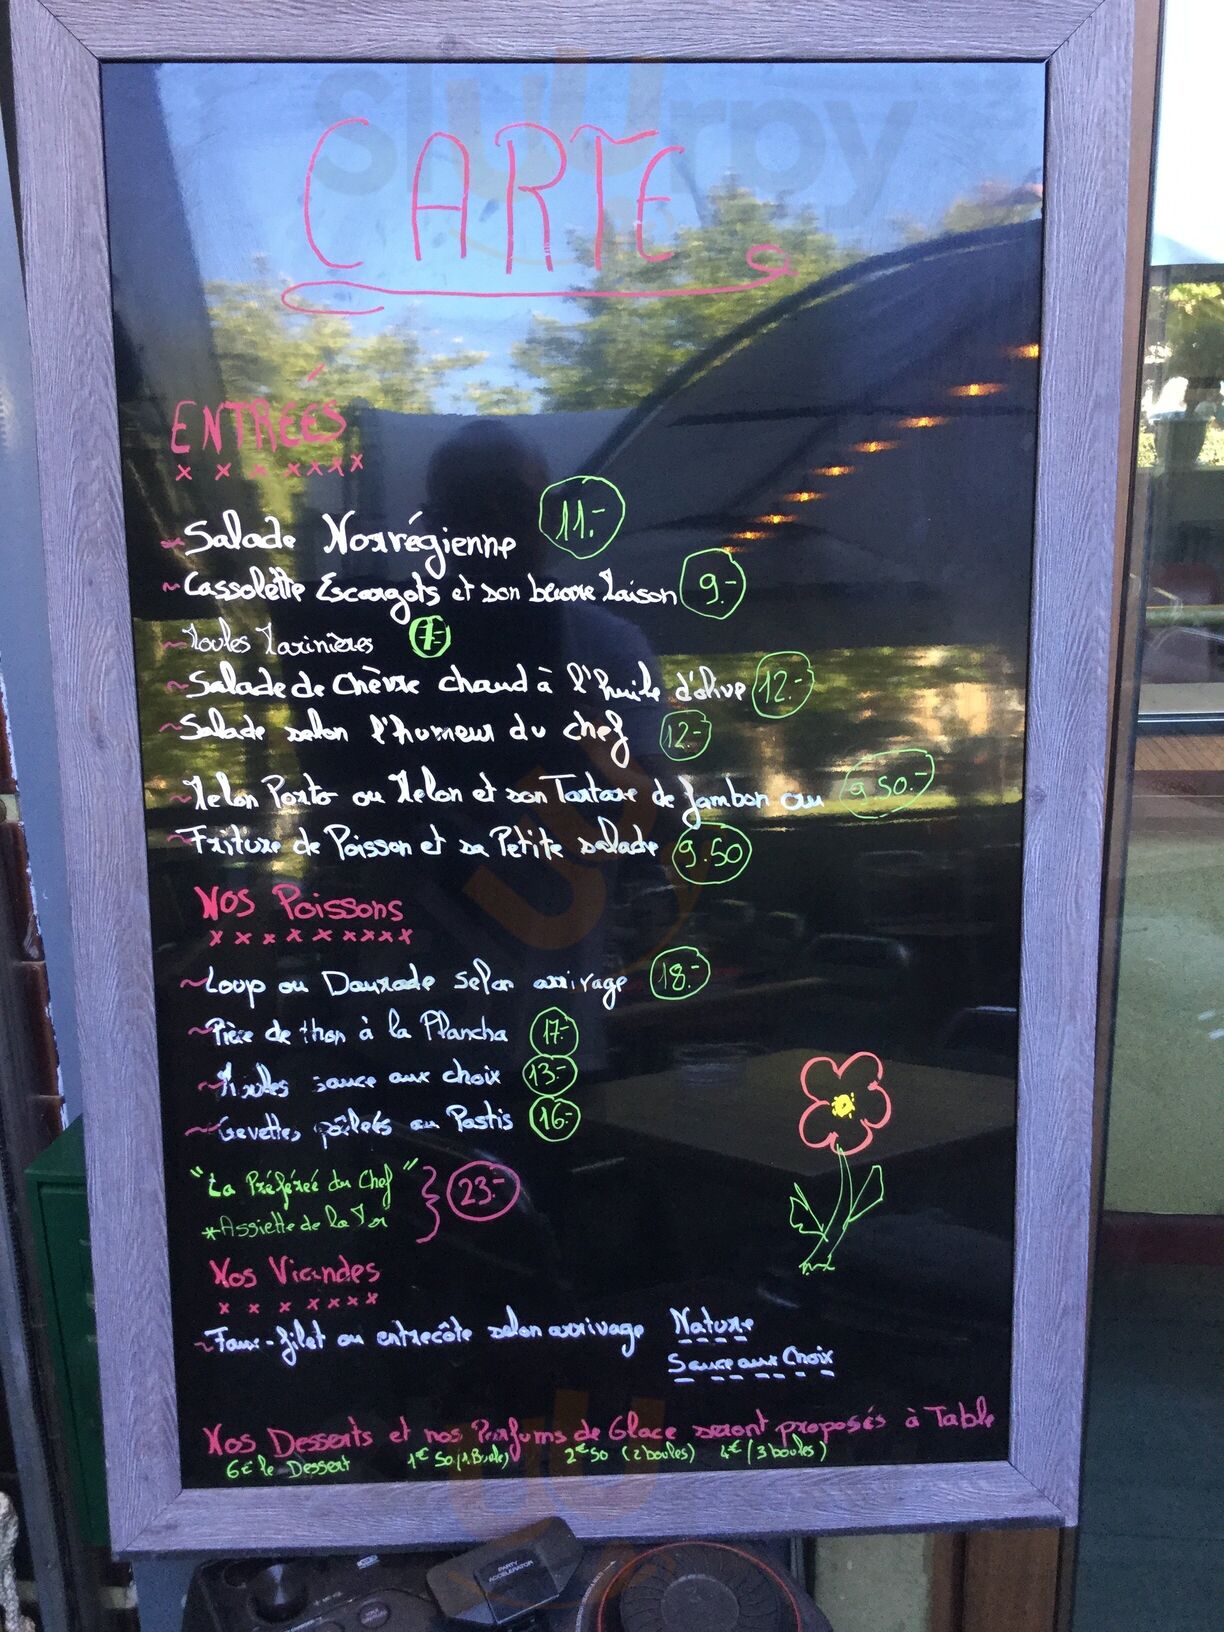 CARTE
ENTRÉES
Salade Norvégienne 11.-
Cassolette Escargots et son beurre Maison 9.-
Moules Marinières 7.-
Salade de Chèvre chaud à l'huile d'olive 12.-
Salade selon l'humeur du chef 12.-
Melon Porto ou Melon et son Tartare de Jambon cru 9.50.-
Friture de Poisson et sa Petite salade 9.50
Nos Poissons
Loup ou Daurade selon arrivage 18.-
Pièce de thon à la Plancha 17.-
Moules sauce aux choix 13.-
Gevettes pöêleés au Pastis 16.-
"La Préféreé du Chef"
*Assiette de la Mer 23.-
Nos Viandes
Faux-filet ou entrecôte selon arrivage Nature
Sauce aux Choix
Nos Desserts et nos Parfums de Glace seront proposés à Table
6€ le Dessert 1€50 (1 Boule) 2€50 (2 boules) 4€ (3 boules)
PARTY
ACCELERATOR
Sluurpy